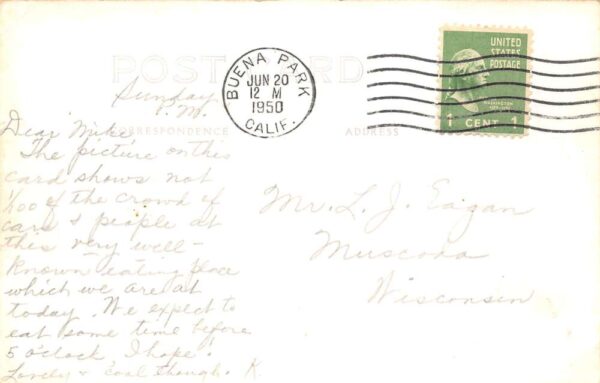 POST CARD
BUENA PARK
JUN 20
12 M
1950
CALIF.
UNITED
STATES
POSTAGE
WASHINGTON
1 CENT 1
CORRESPONDENCE
ADDRESS
Sunday
P.M.
Dear Mike
The picture on this
card shows not
1/100 of the crowd of
cars & people at
this very well-
known eating place
which we are at
today. We expect to
eat some time before
5 o'clock, I hope!
Lovely & cool though. K
Mr. L. J. Eagan
Muscoda
Wisconsin